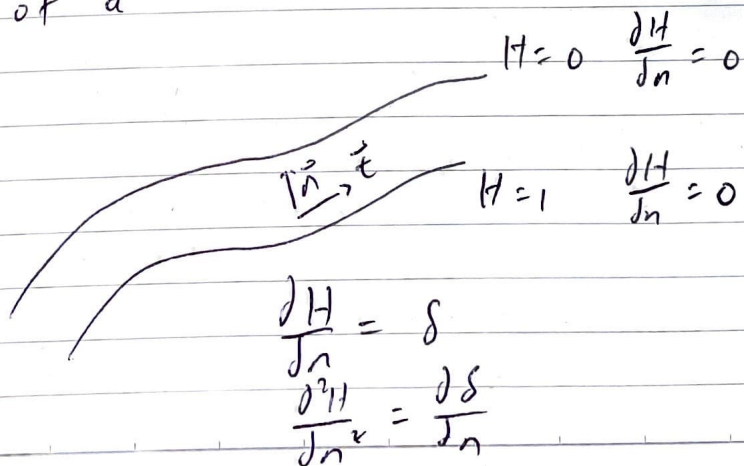 of a
H = 0 ∂H/∂n = 0
n⃗ t⃗
H = 1 ∂H/∂n = 0
∂H/∂n = δ
∂²H/∂n² = ∂δ/∂n